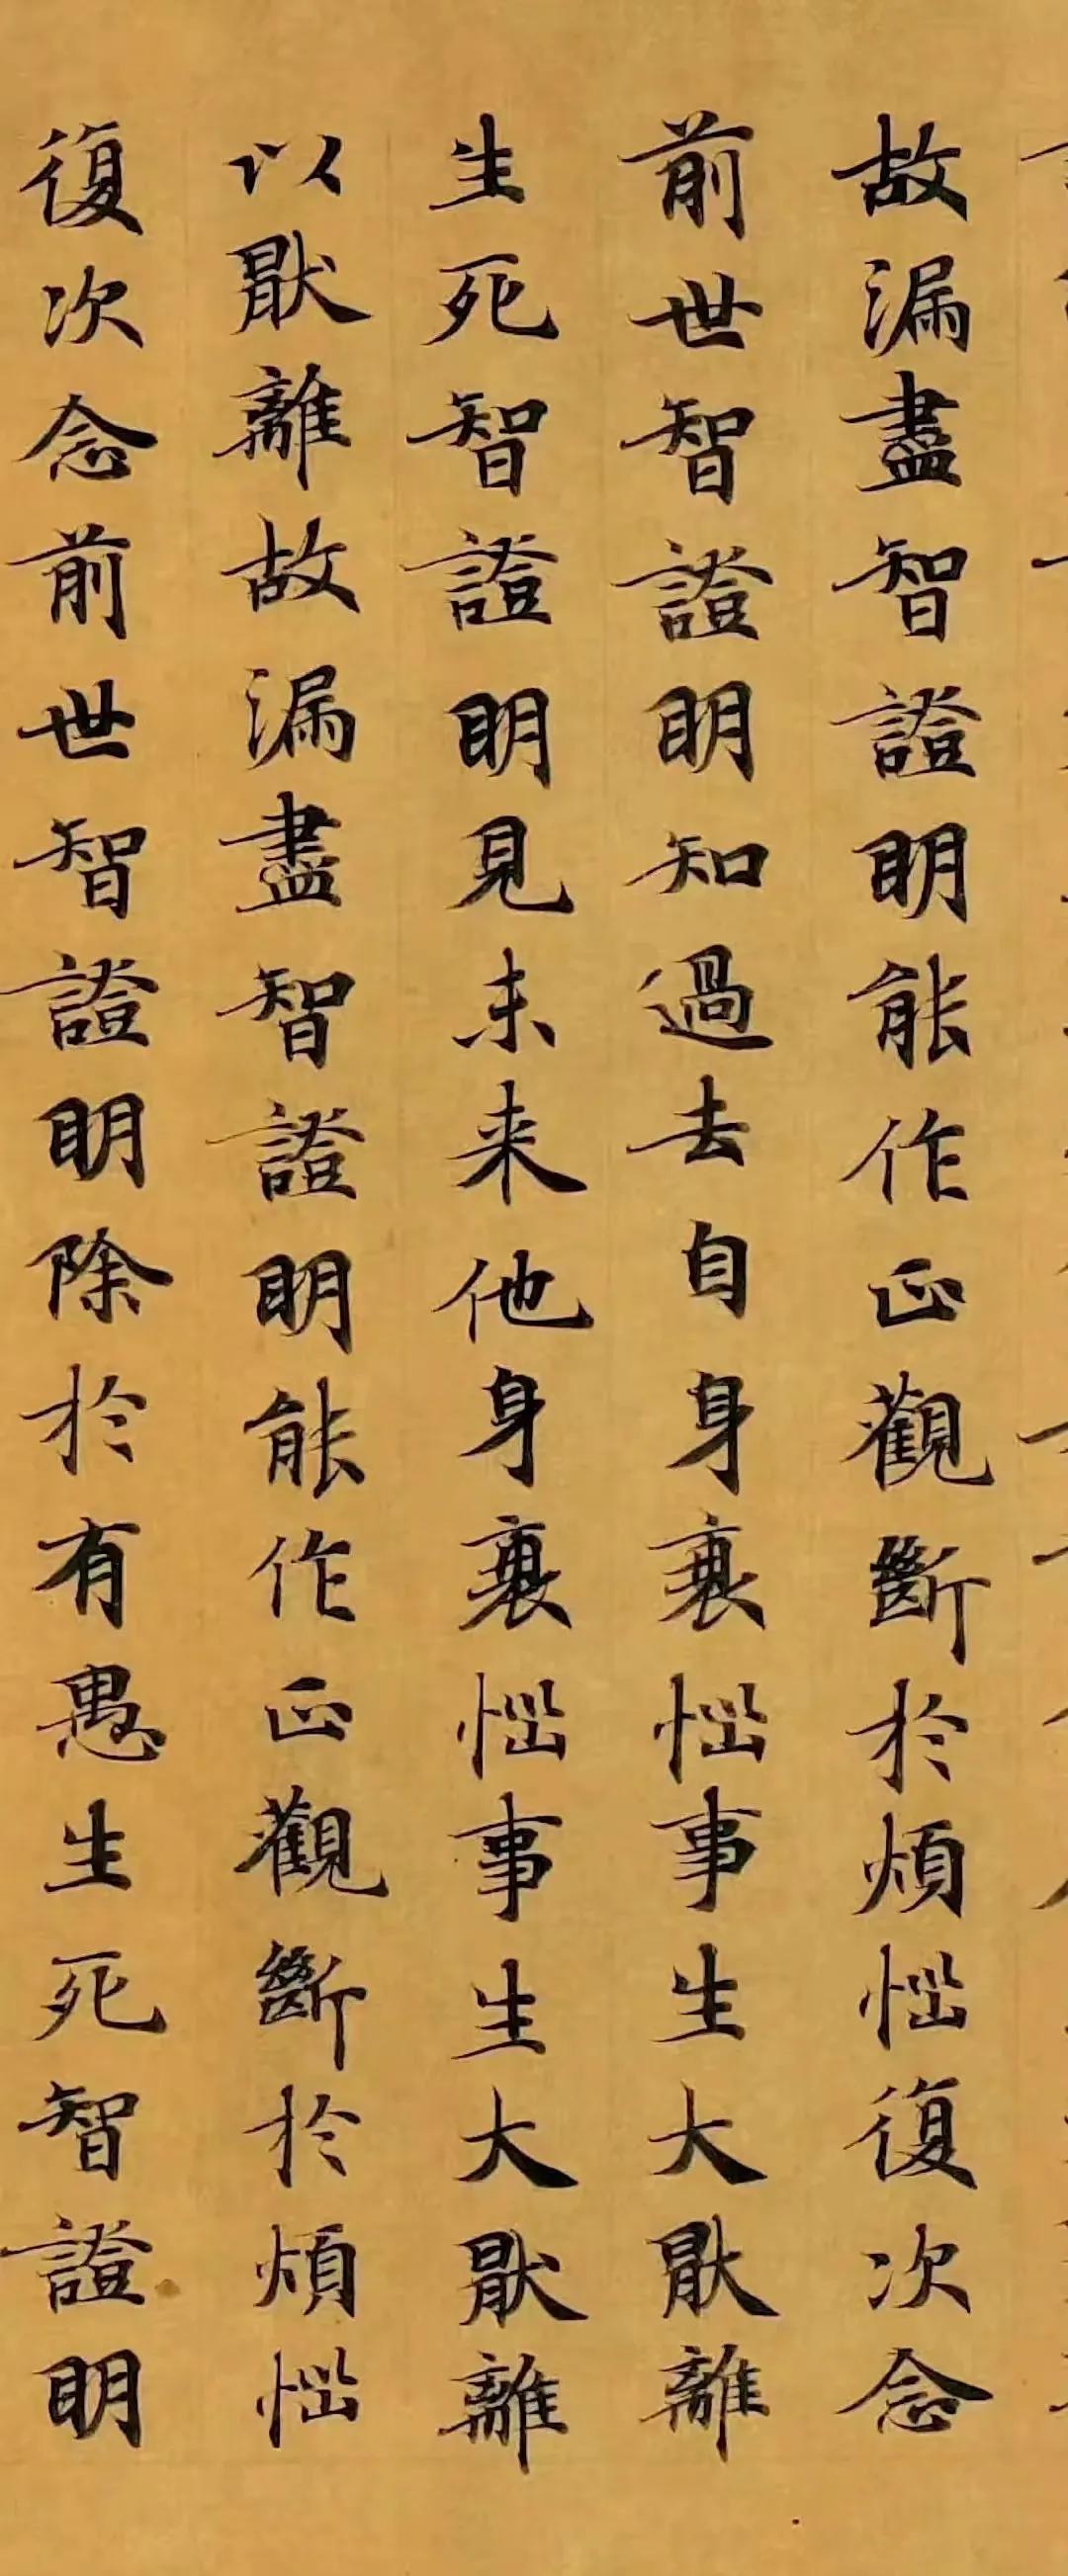 故漏盡智證明能作正觀斷於煩惱復次念
前世智證明知過去自身衰惱事生大猒離
生死智證明見未来他身衰惱事生大猒離
以猒離故漏盡智證明能作正觀斷於煩惱
復次念前世智證明除於有愚生死智證明